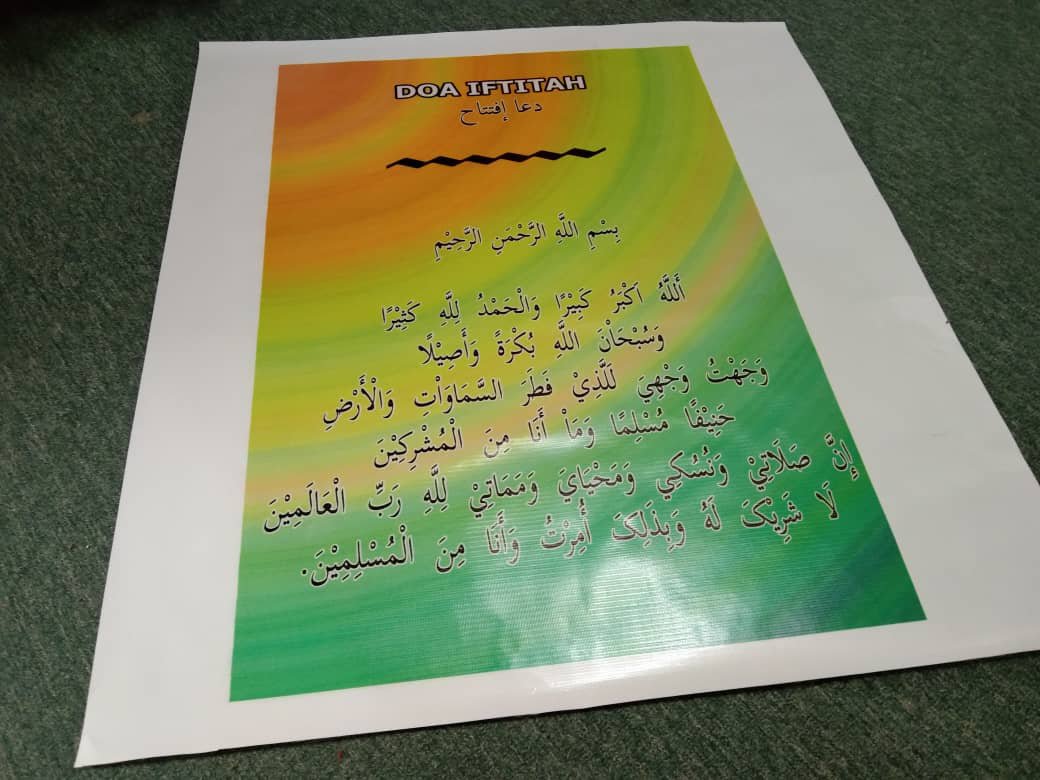 DOA IFTITAH
دعا إفتتاح
بِسْمِ اللَّهِ الرَّحْمَنِ الرَّحِيْمِ
أَللَّهُ اَكْبَرُ كَبِيْرًا وَالْحَمْدُ لِلَّهِ كَثِيْرًا
وَسُبْحَانَ اللَّهِ بُكْرَةً وَأَصِيْلًا
وَجَهْتُ وَجْهِيَ لَلَّذِيْ فَطَرَ السَّمَاوَاْتِ وَالْأَرْضِ
حَنِيْفًا مُسْلِمًا وَمَاْ أَنَا مِنَ الْمُشْرِكِيْنَ
إِنَّ صَلَاتِيْ وَنُسُكِي وَمَحْيَايَ وَمَمَاتِيْ لِلَّهِ رَبِّ الْعَالَمِيْنَ
لَا شَرِيْكَ لَهُ وَبِذَلِكَ أُمِرْتُ وَأَنَا مِنَ الْمُسْلِمِيْنَ.